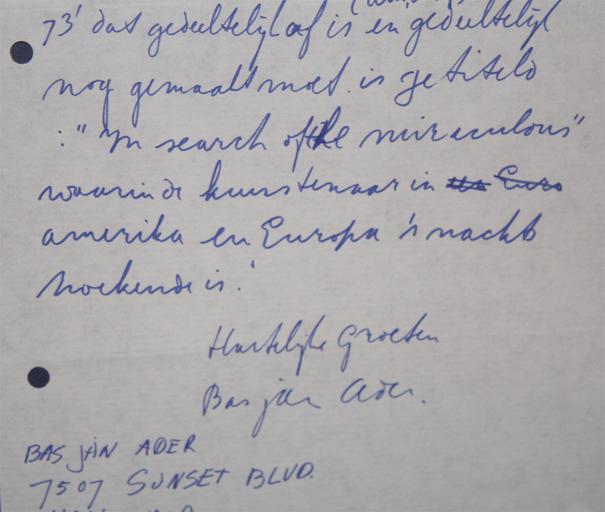 73' dat gedeeltelijk af is en gedeeltelijk
nog gemaakt moet is getiteld
: "In search of the miraculous"
waarin de kunstenaar in
amerika en Europa 's nachts
zoekende is.
Hartelijke Groeten
Bas jan Ader.
BAS JAN ADER
7507 SUNSET BLVD.